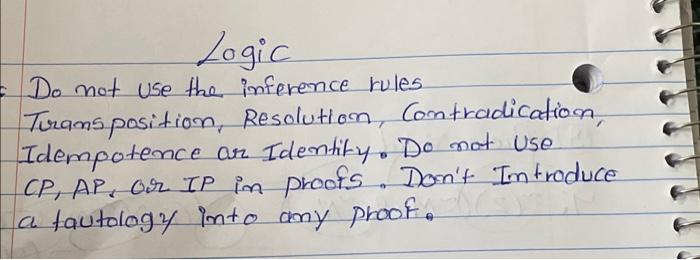 Logic
Do not use the inference rules
Transposition, Resolution, Contradication,
Idempotence or Identity. Do not use
CP, AP, or IP in proofs. Don't Introduce
a tautology into any proof.